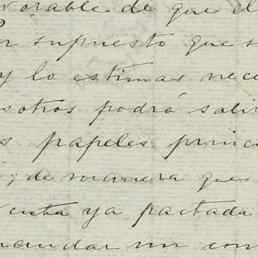 vorable de que el
por supuesto que s
y lo estimas nece
sotros podrá salir
s papeles princ
; de manera que
venta ya pactada
mandar un con